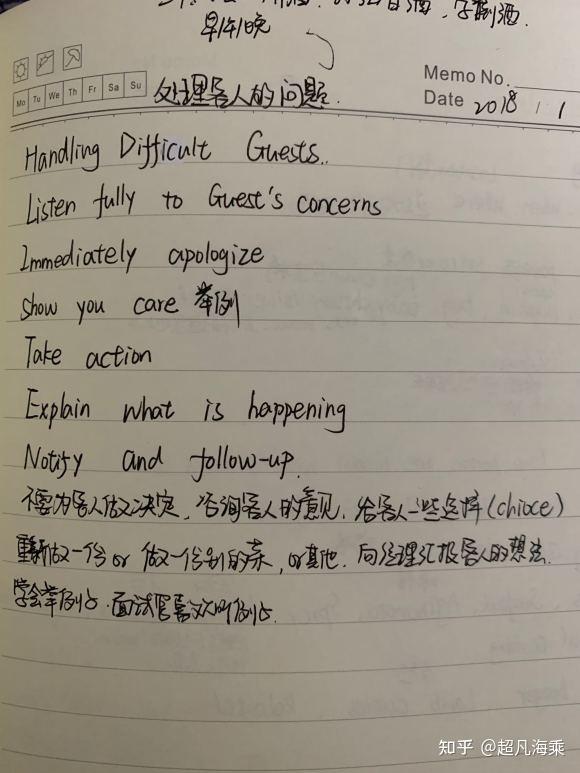 白酒，字制酒.
早/午/晚
Memo No.
Mo Tu We Th Fr Sa Su
处理客人的问题.
Date 2018 / 1
Handling Difficult Guests..
Listen fully to Guest's concerns
Immediately apologize
Show you care 举例
Take action
Explain what is happening
Notify and follow-up.
不要为客人做决定，咨询客人的意见，给客人一些选择(chioce)
重新做一份 or 做一份别的菜，or其他. 向经理汇报客人的想法.
学会举例子.面试官喜欢听例子.
知乎 @超凡海乘